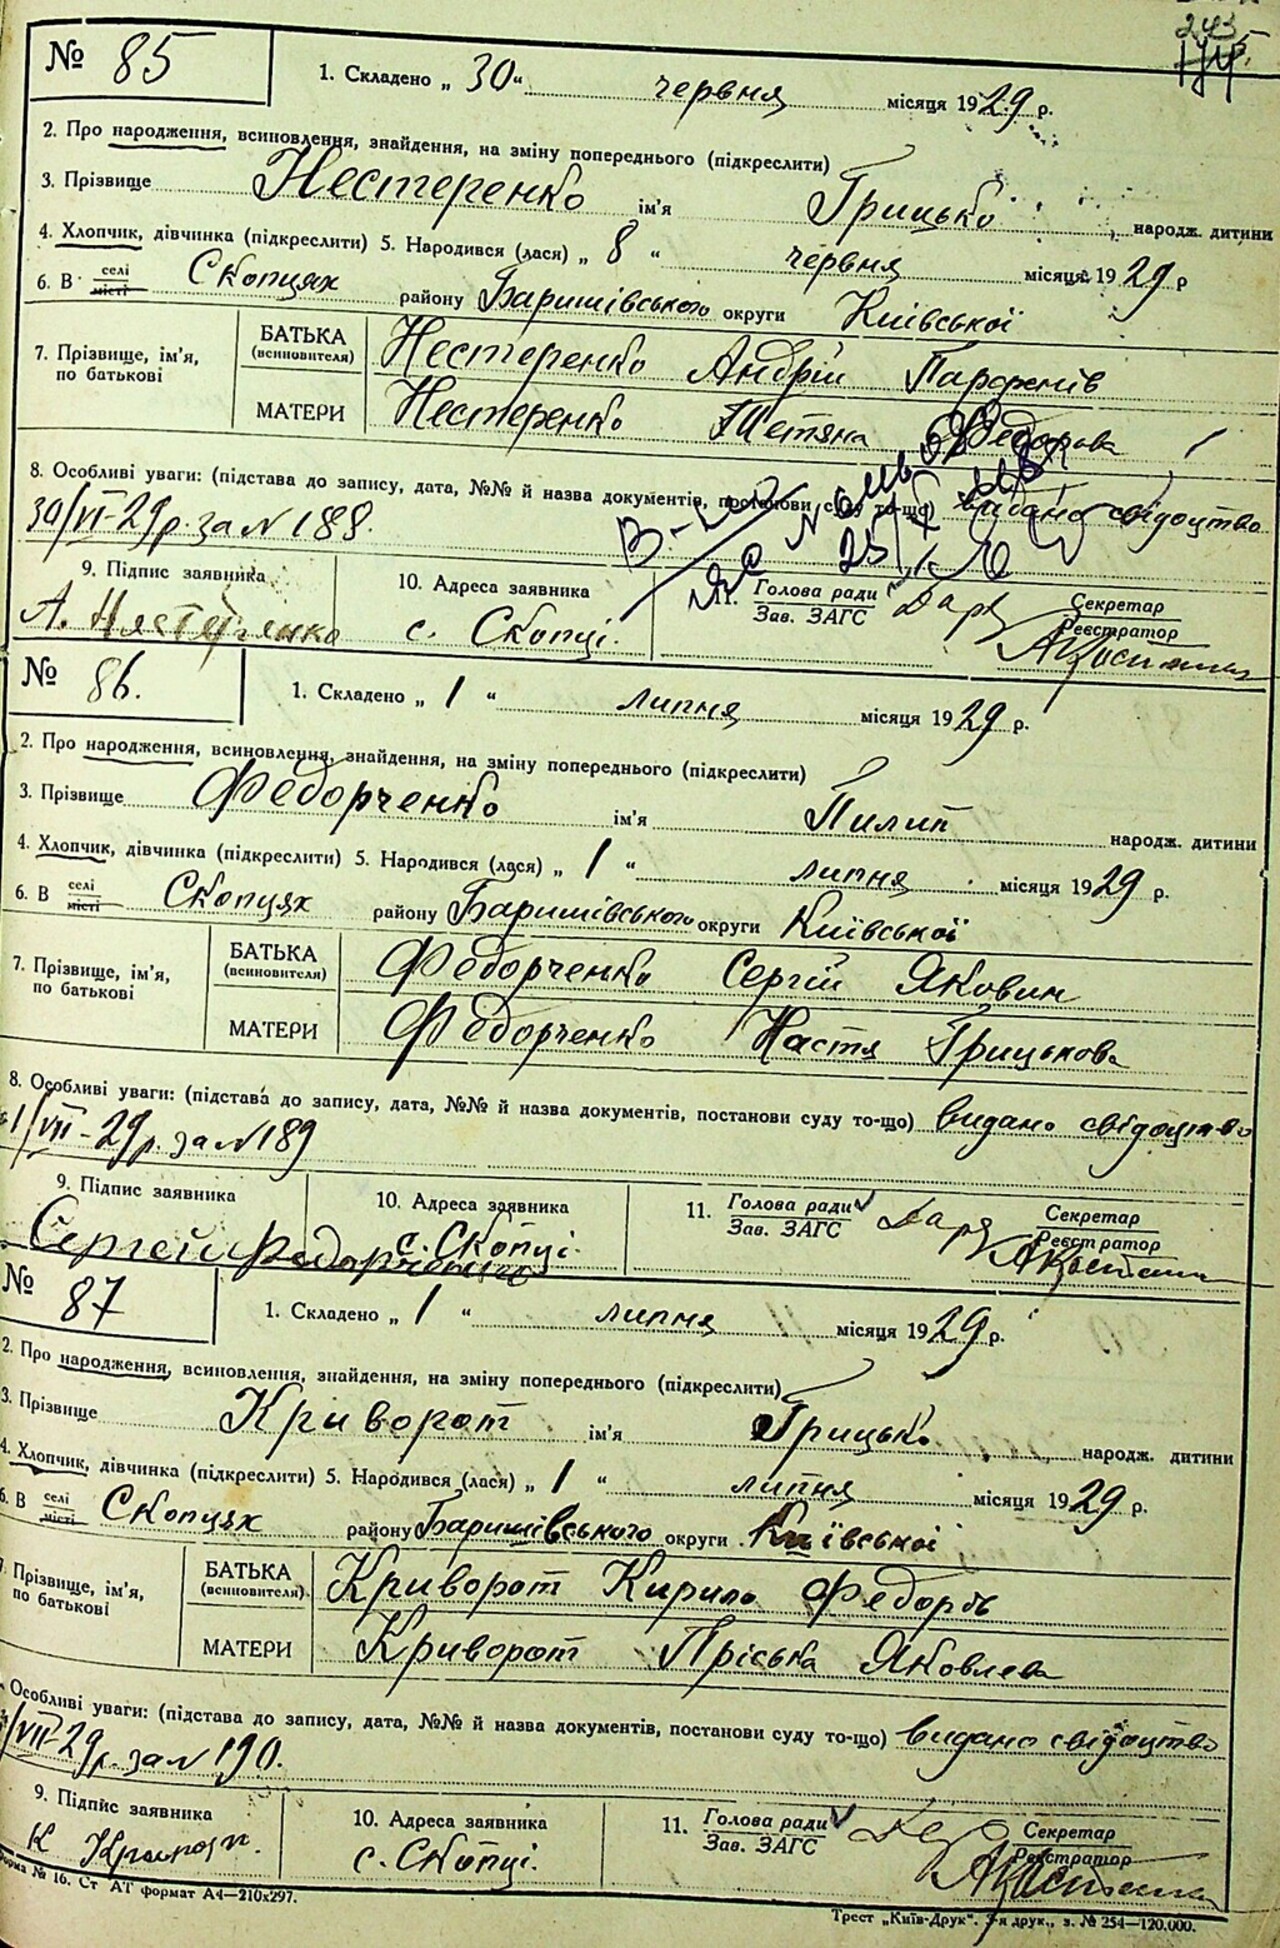 243
№ 85
1. Складено „ 30 “ червня місяця 1929 р.
2. Про народження, всиновлення, знайдення, на зміну попереднього (підкреслити)
3. Прізвище Нестеренко ім'я Грицько народж. дитини
4. Хлопчик, дівчинка (підкреслити) 5. Народився (лася) „ 8 “ червня місяця 1929 р
6. В селі місті Скопцях району Баришівського округи Київської
7. Прізвище, ім'я, по батькові
БАТЬКА (всиновителя) Нестеренко Андрій Парфенів
МАТЕРИ Нестеренко Тетяна Федорова
8. Особливі уваги: (підстава до запису, дата, №№ й назва документів, постанови суду то-що) видано свідоцтво
30/VI-29 р. за N 188.
9. Підпис заявника 10. Адреса заявника 11. Голова ради Зав. ЗАГС Секретар Реєстратор
А. Нястерянко с. Скопці.
№ 86.
1. Складено „ 1 “ липня місяця 1929 р.
2. Про народження, всиновлення, знайдення, на зміну попереднього (підкреслити)
3. Прізвище Федорченко ім'я Пилип народж. дитини
4. Хлопчик, дівчинка (підкреслити) 5. Народився (лася) „ 1 “ липня місяця 1929 р.
6. В селі місті Скопцях району Баришівського округи Київської
7. Прізвище, ім'я, по батькові
БАТЬКА (всиновителя) Федорченко Сергій Яковин
МАТЕРИ Федорченко Настя Грицькова
8. Особливі уваги: (підстава до запису, дата, №№ й назва документів, постанови суду то-що) видано свідоцтво
1/VII-29 р. за N 189
9. Підпис заявника 10. Адреса заявника 11. Голова ради Зав. ЗАГС Секретар Реєстратор
Сергей Федорченко с. Скопці.
№ 87
1. Складено „ 1 “ липня місяця 1929 р.
2. Про народження, всиновлення, знайдення, на зміну попереднього (підкреслити)
3. Прізвище Криворот ім'я Грицько народж. дитини
4. Хлопчик, дівчинка (підкреслити) 5. Народився (лася) „ 1 “ липня місяця 1929 р.
6. В селі місті Скопцях району Баришівського округи Київської
Прізвище, ім'я, по батькові
БАТЬКА (всиновителя) Криворот Кирило Федорів
МАТЕРИ Криворот Пріська Яковлева
Особливі уваги: (підстава до запису, дата, №№ й назва документів, постанови суду то-що) видано свідоцтво
/VII-29 р. за N 190.
9. Підпис заявника 10. Адреса заявника 11. Голова ради Зав. ЗАГС Секретар Реєстратор
К с. Скопці.
форма № 16. Ст АТ формат А4—210х297.
Трест „Київ-Друк“. 3-я друк., з. № 254—120.000.